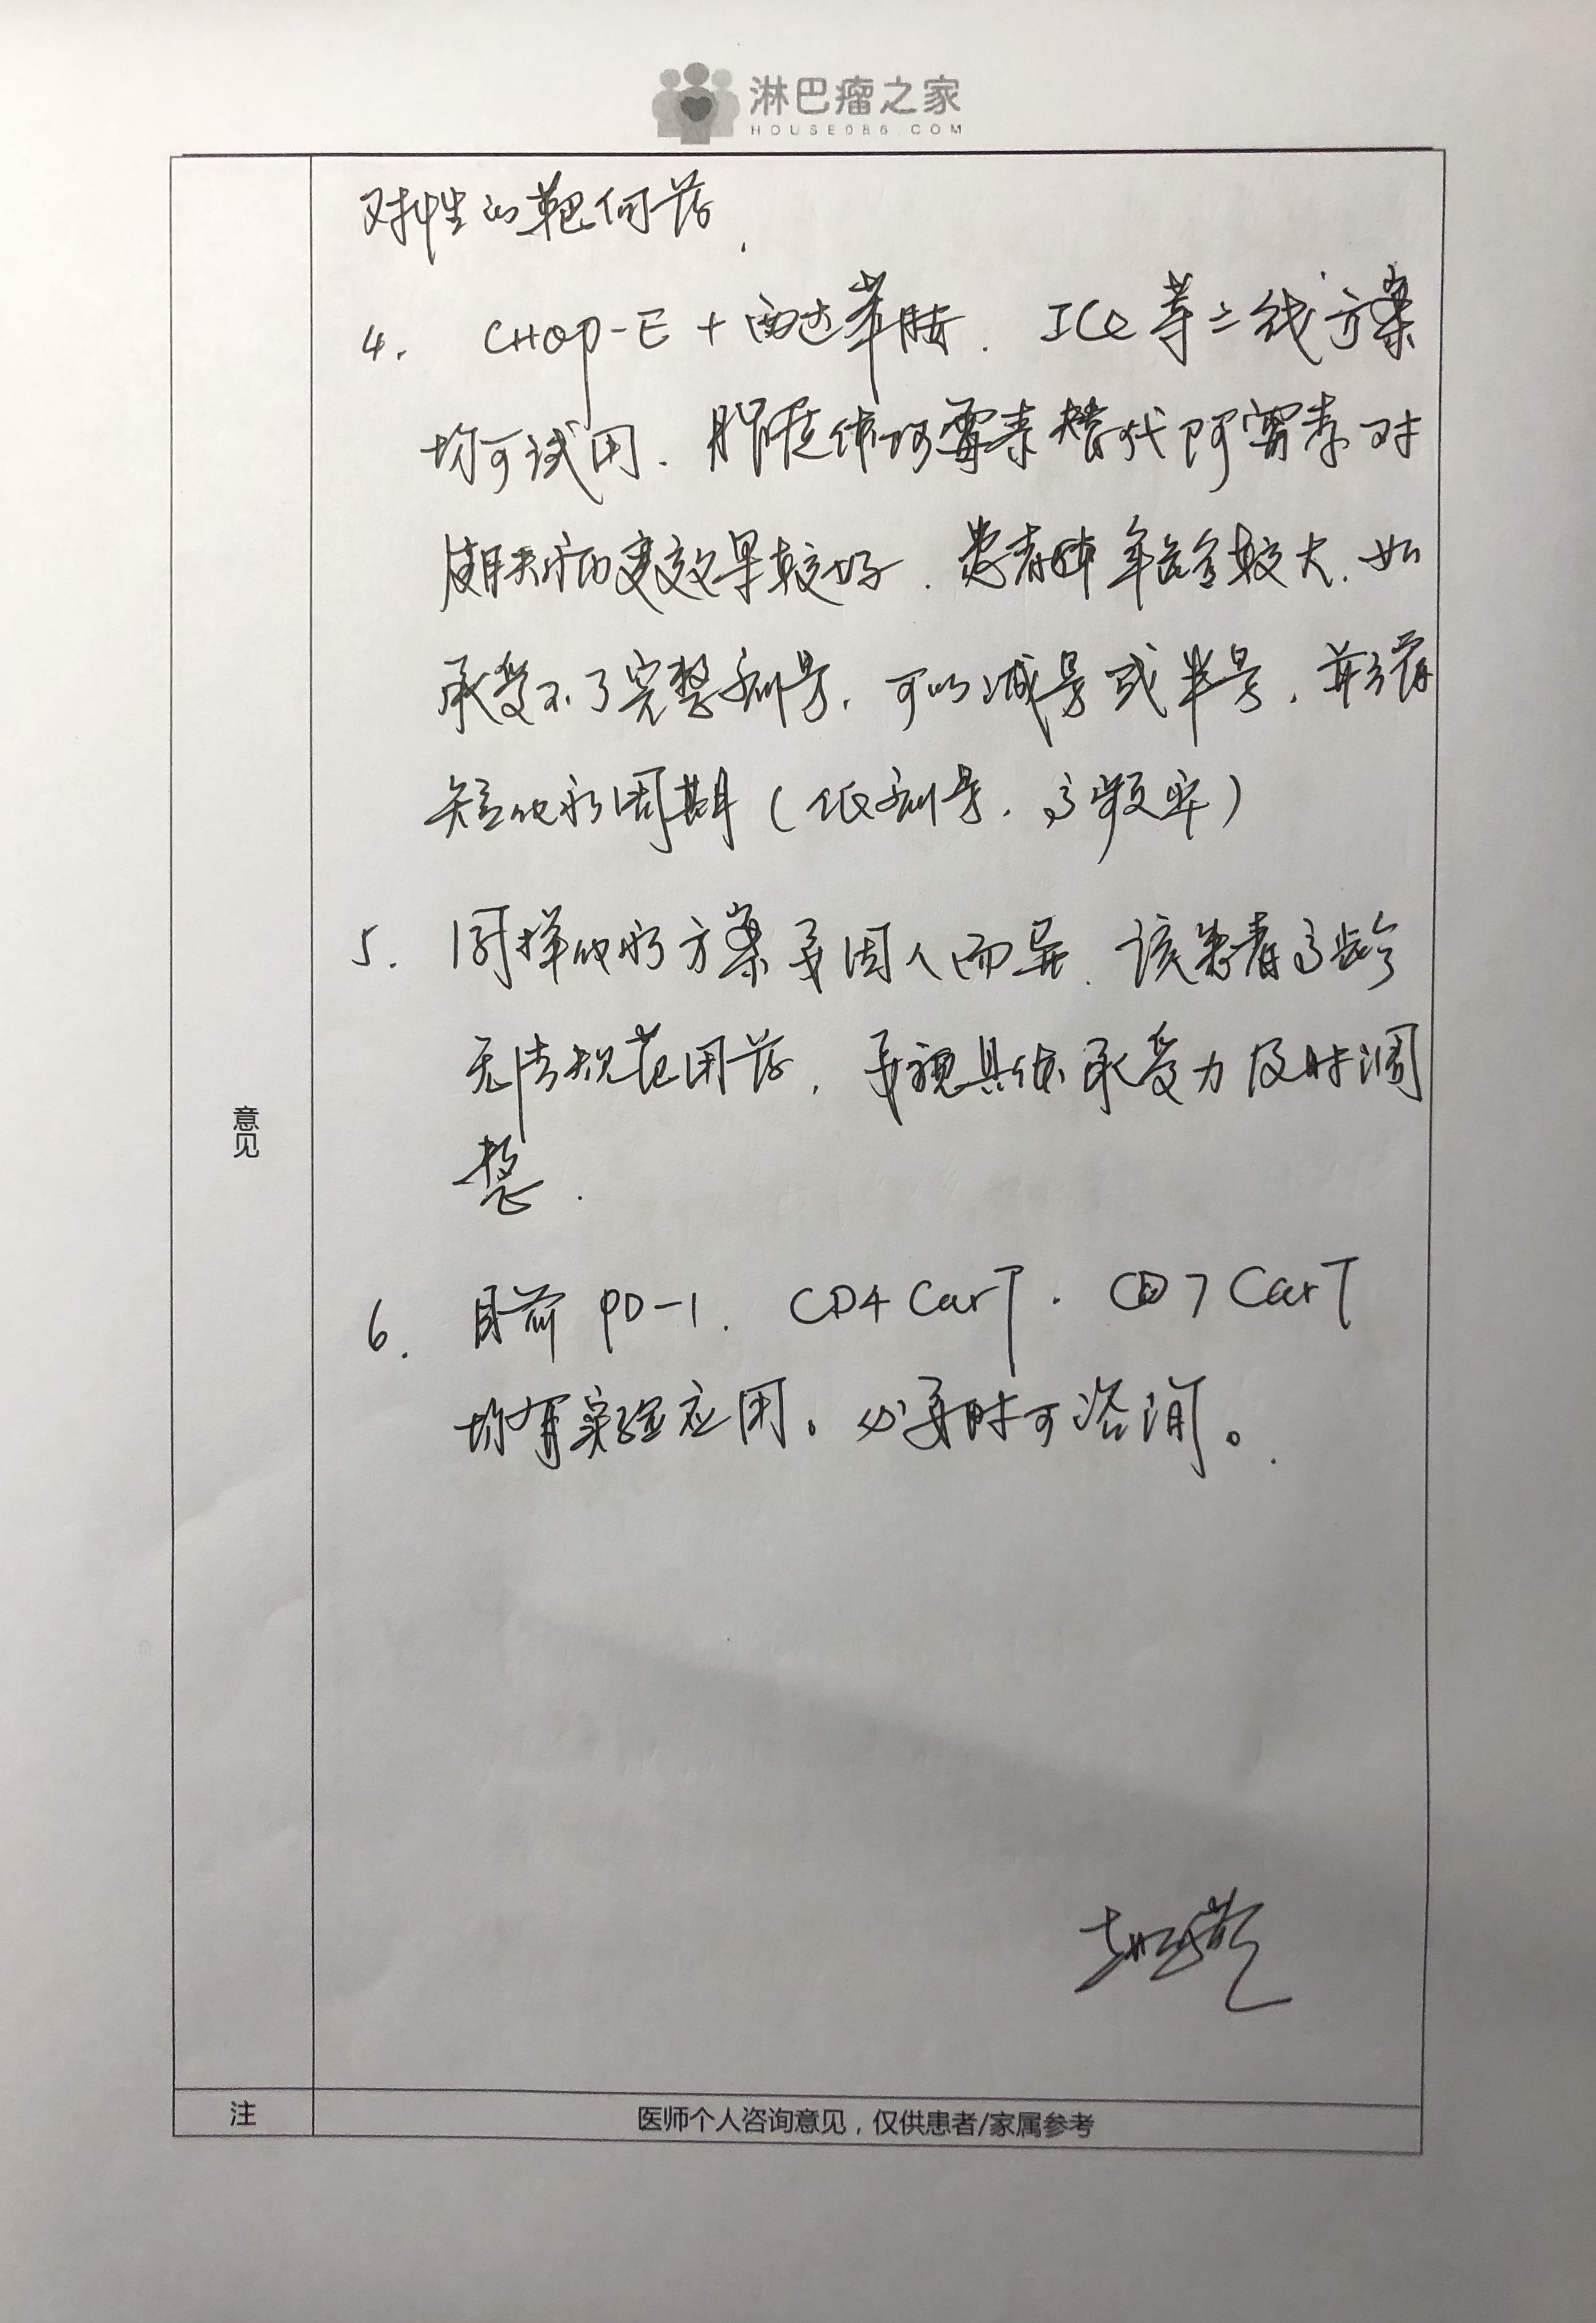 淋巴瘤之家
HOUSE086.COM
对性的靶向药.
4. CHOP-E + 西达苯胺. ICE等二线方案
均可试用. 脂质体阿霉素替代阿霉素对
皮肤病变效果较好. 患者年龄较大. 如
承受不了完整剂量, 可以减量或半量, 并缩
短化疗周期(低剂量. 高频率)
5. 同样化疗方案要因人而异. 该患者高龄
无法规范用药, 要视具体承受力及时调
整.
意见
6. 目前 PD-1. CD4 CarT. CD7 CarT
均有实验应用。必要时可咨询。
注
医师个人咨询意见，仅供患者/家属参考